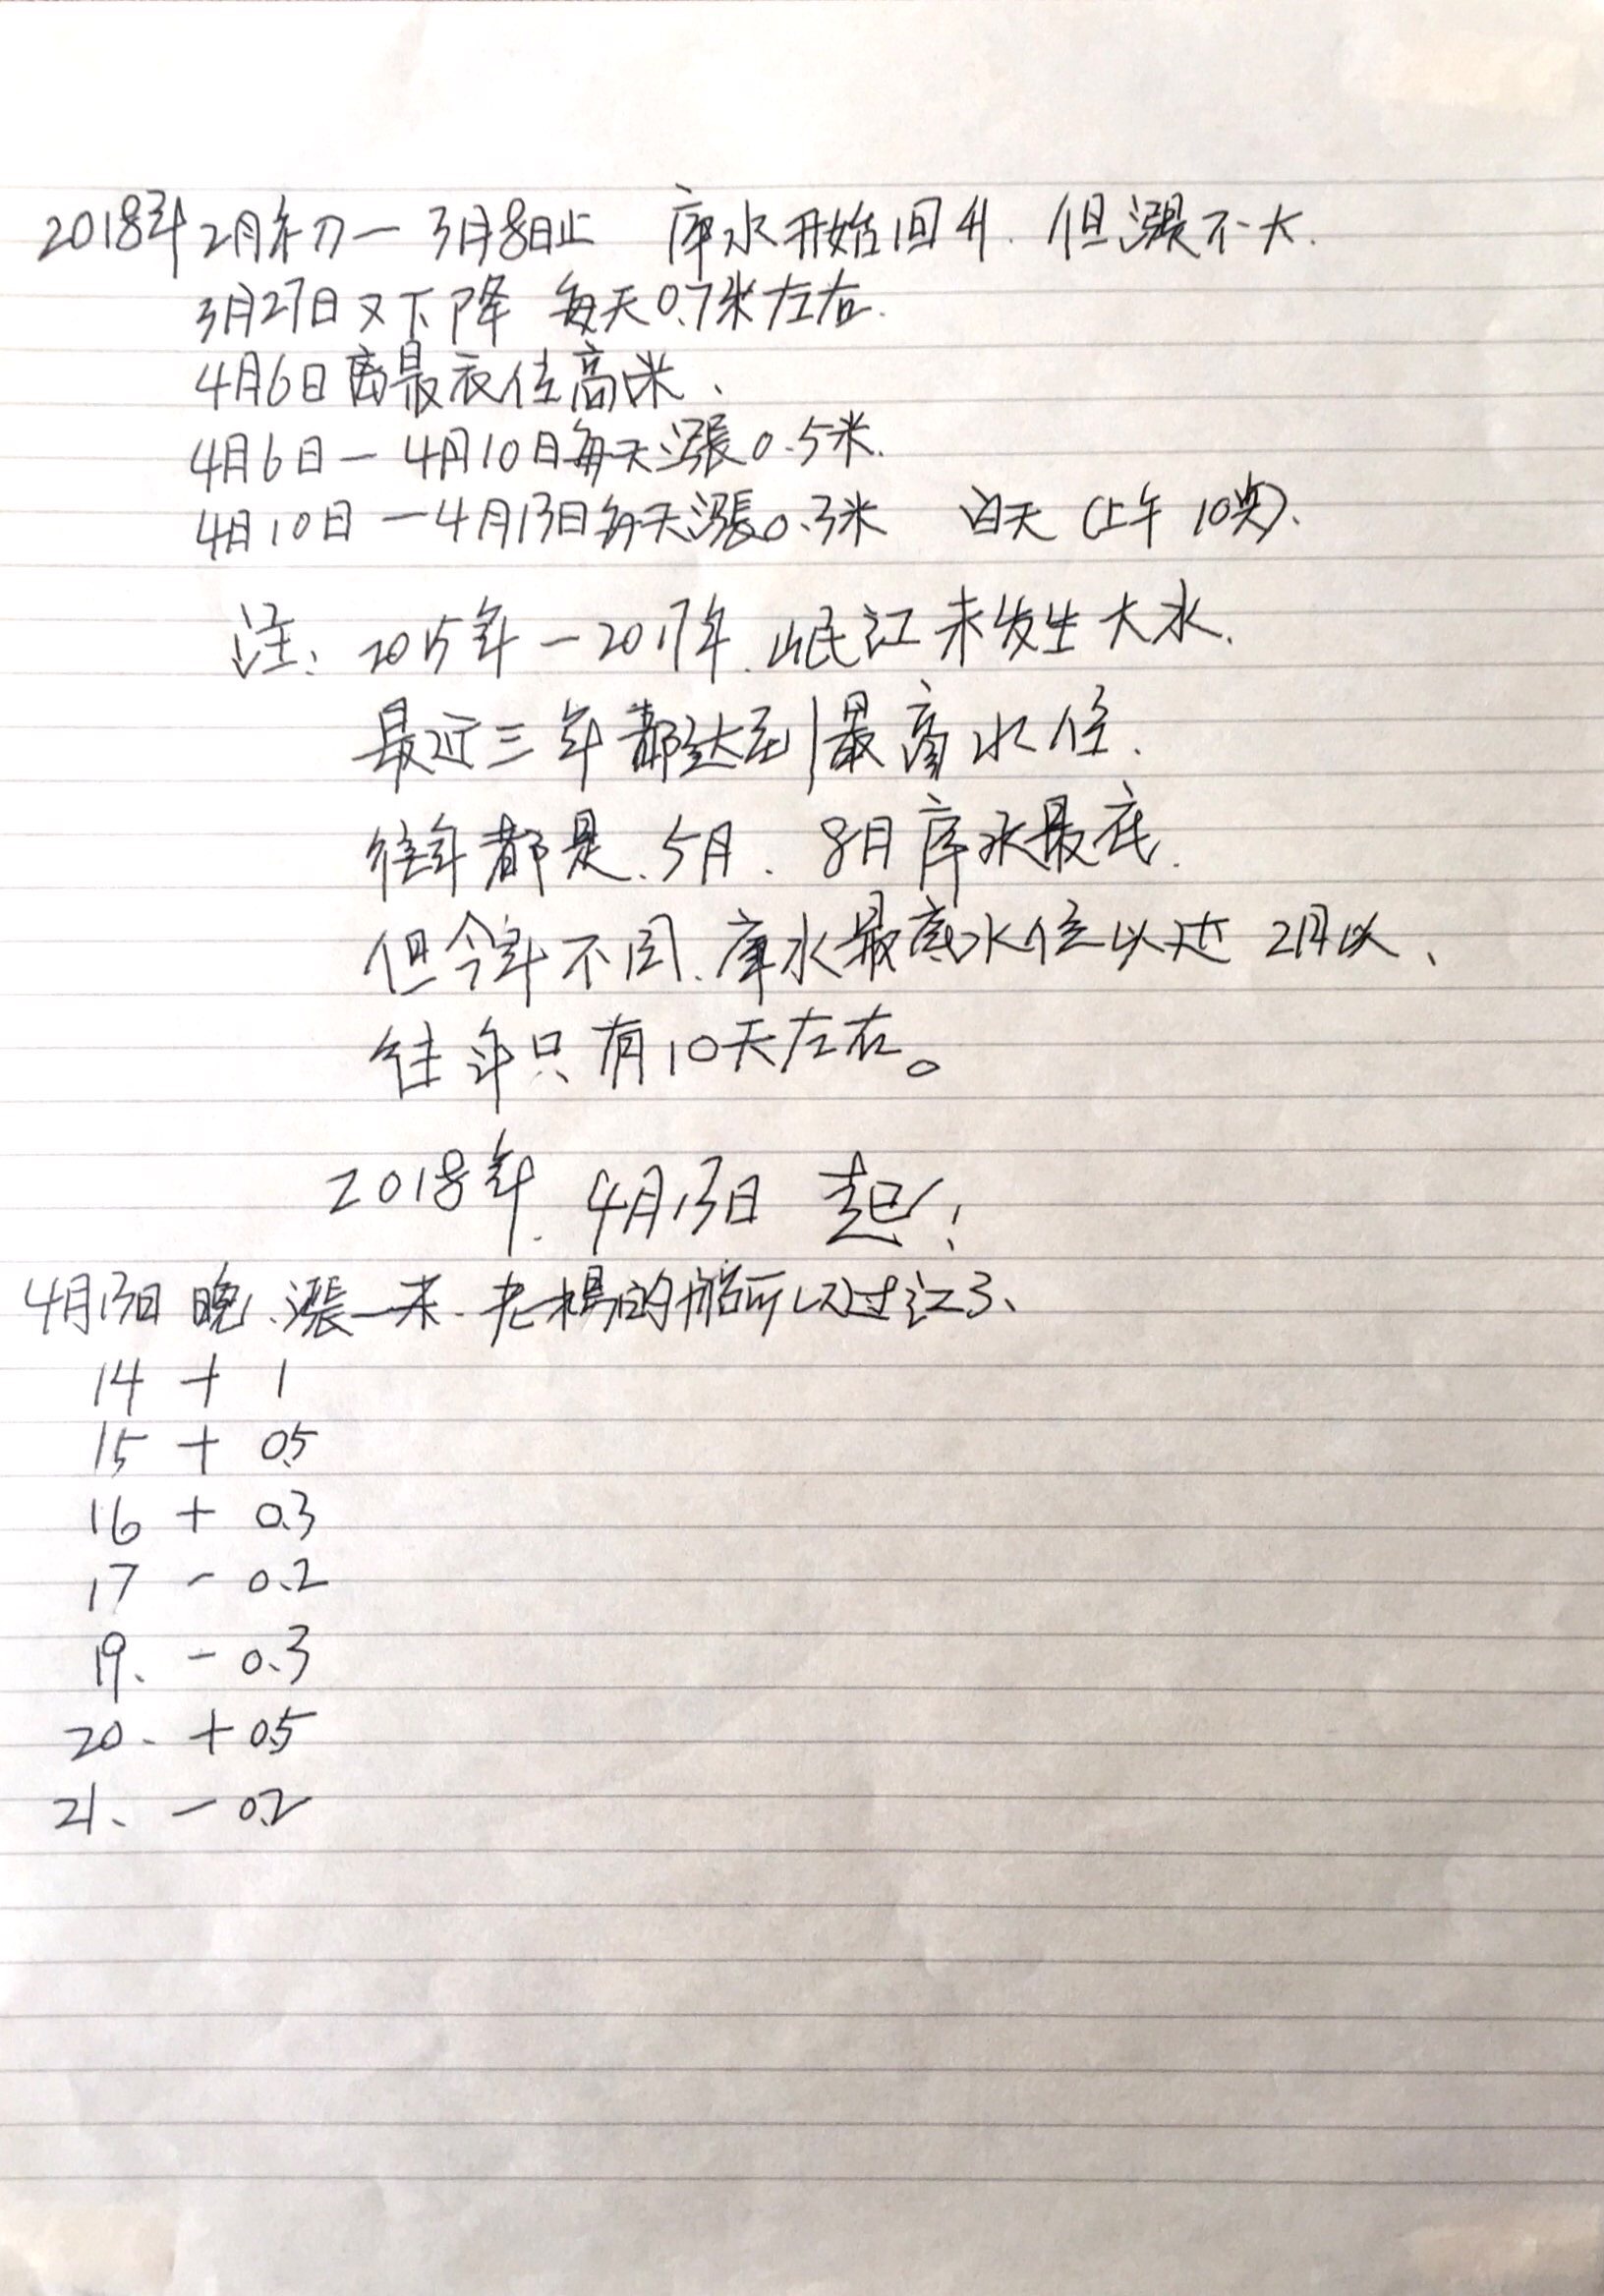 2018年2月初一3月8日止 库水开始回升.但漲不大.
3月27日又下降 每天0.7米左右.
4月6日离最底位高1米、
4月6日一4月10日每天漲0.5米.
4月10日一4月13日每天漲0.3米 白天(上午10点).
注:2015年一2017年.岷江未发生大水.
最近三年都达到最高水位.
往年都是.5月.8月库水最底.
但今年不同.库水最底水位以过2月以、
往年只有10天左右。
2018年.4月13日起:
4月13日晚.漲一米.老楊的船可以过江了、
14 + 1
15 + 0.5
16 + 0.3
17 - 0.2
19、- 0.3
20、+ 0.5
21、- 0.2